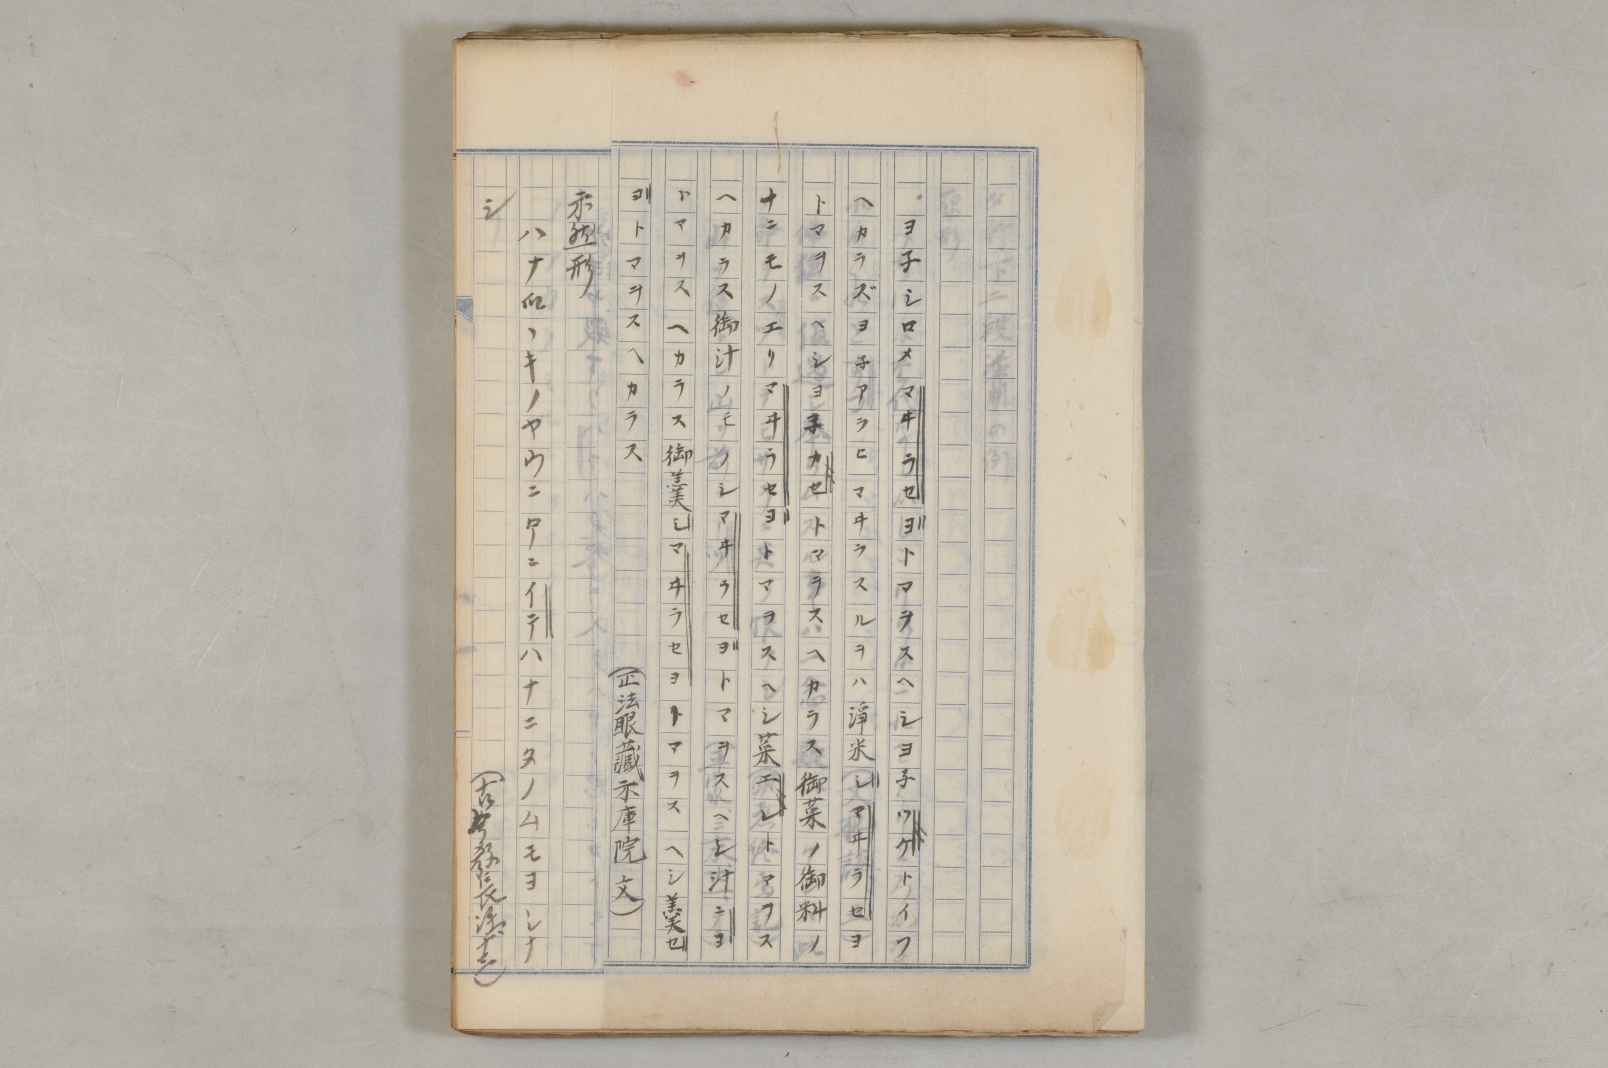 ヨ子シロメマヰラセヨトマヲスヘシヨ子ツケトイフ
ヘカラズヨ子アラヒマヰラスルヲハ淨米シマヰラセヨ
トマヲスヘシヨ子カセトマラスヘカラス御菜ノ御料ノ
ナニモノエリマヰラセヨトマヲスヘシ菜エレトマヲス
ヘカラス御汁ノモノシマヰラセヨトマヲスヘシ汁ニヨ
トマヲスヘカラス御羹シマヰラセヨトマヲスヘシ羹セ
ヨトマヲスヘカラス
(正法眼藏示庫院文)
未然形
ハナ似ヽキノヤウニロアニイテハナニタノムモヨシナ
シ